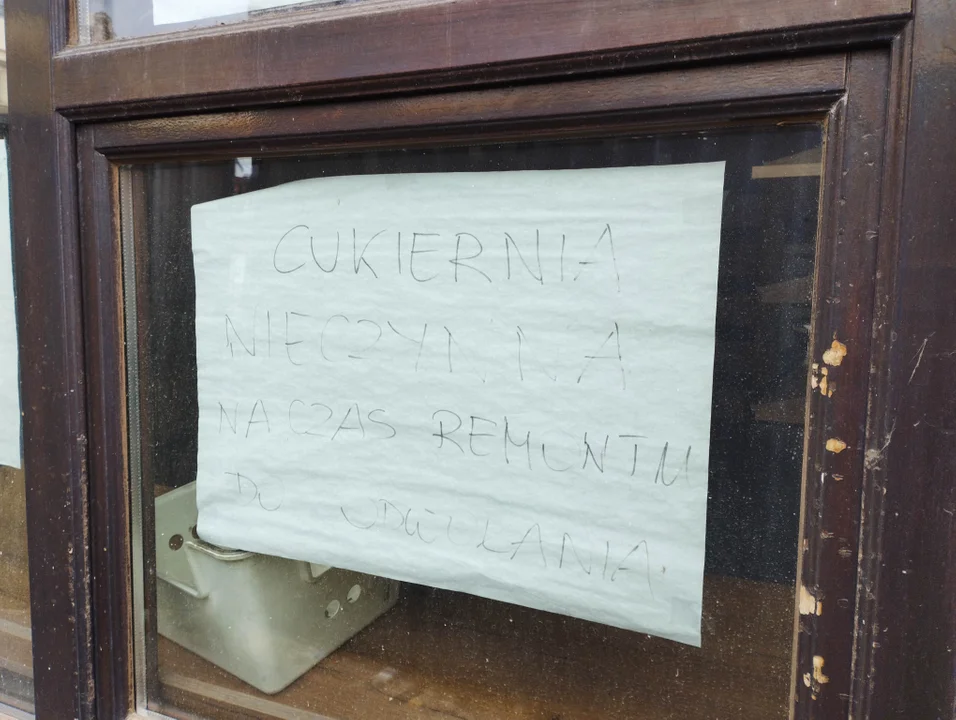 CUKIERNIA
NIECZYNNA
NA CZAS REMONTU
DO ODWOŁANIA.